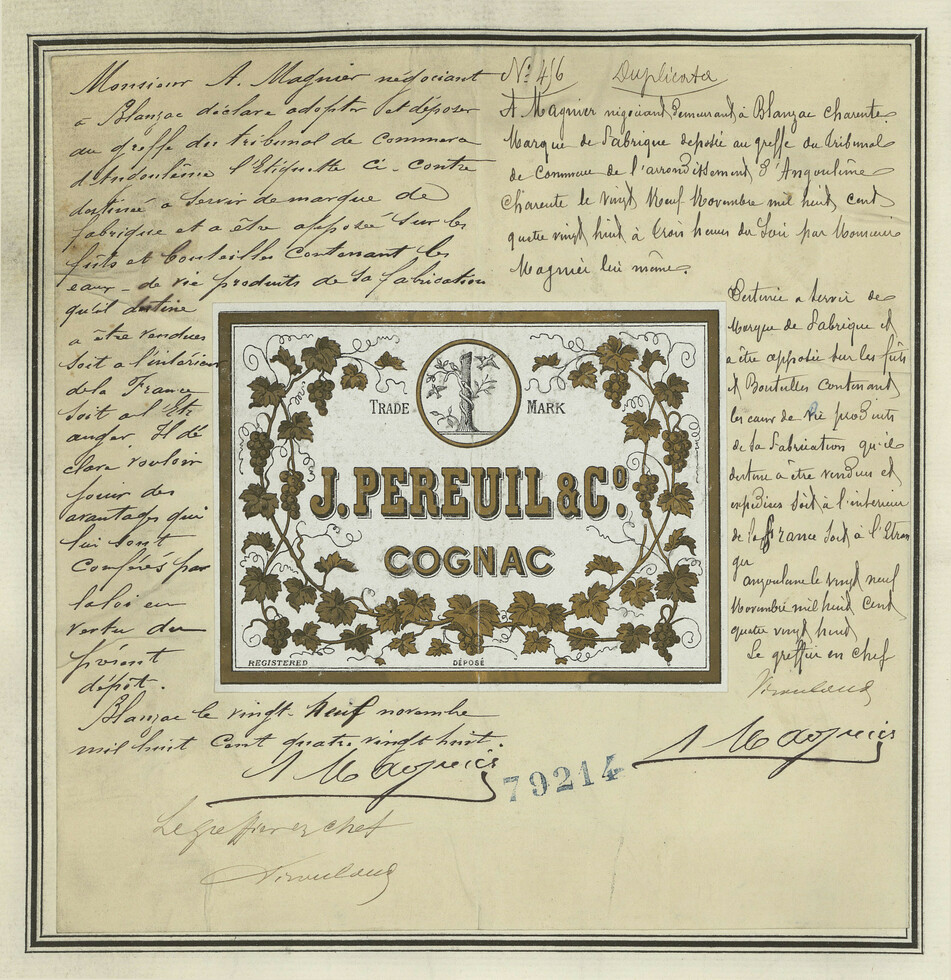 Monsieur A. Magnier négociant
a Blanzac déclare adopter et déposer
au greffe du tribunal de commerce
d'Angoulême l'Etiquette ci-contre
destinée a servir de marque de
fabrique et a être apposée sur les
fûts et bouteilles contenant les
eaux-de vie produits de sa fabrication
qu'il destine
a être vendues
soit a l'intérieur
de la France
soit a l'Etr
anger. Il dé
clare vouloir
jouir des
avantages qui
lui sont
conférés par
la loi en
vertu du
présent
dépôt.
Blanzac le vingt-neuf novembre
mil huit cent quatre vingt huit.
A Magnier
Le greffier en chef
No 46 Duplicata
A Magnier négociant Demeurant à Blanzac Charente
Marque de Fabrique déposée au greffe du Tribunal
de Commerce de l'arrondissement d'Angoulême
Charente le vingt Neuf Novembre mil huit cent
quatre vingt huit à trois heures du Soir par Monsieur
Magnier lui même.
Destinée a servir de
Marque de Fabrique et
a être apposée sur les fûts
et Bouteilles contenant
les eaux de vie produits
de sa Fabrication qu'il
destine a être vendues et
expédiées soit à l'intérieur
de la France soit à l'Etran
ger
angoulême le vingt neuf
Novembre mil huit cent
quatre vingt huit
Le greffier en chef
A Magnier
TRADE MARK
J. PEREUIL & Co.
COGNAC
REGISTERED DÉPOSÉ
79214